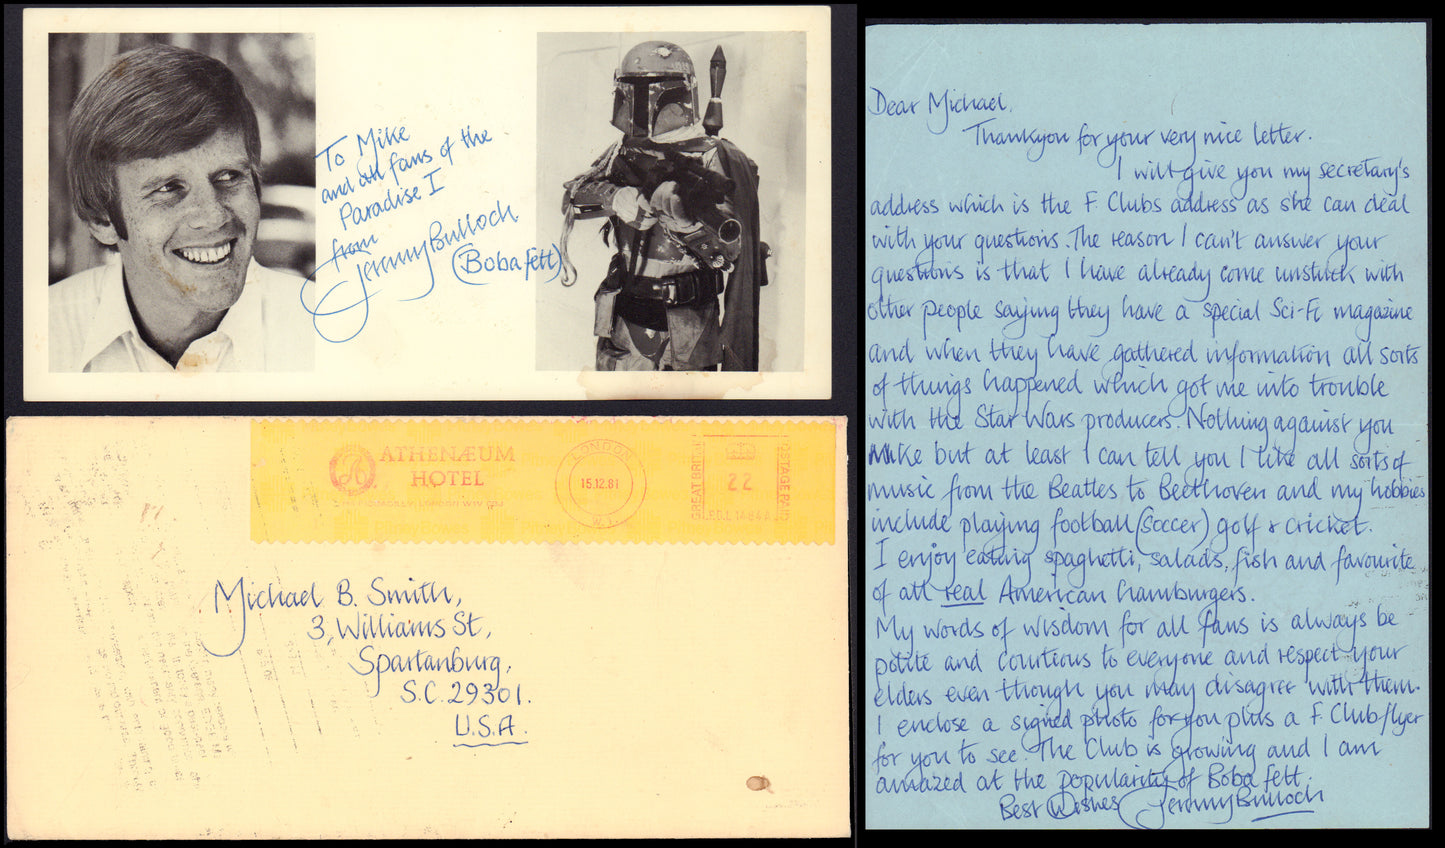 To Mike
and all fans of the
Paradise I
from
Jeremy Bulloch
(Boba fett)
ATHENÆUM
HOTEL
PICCADILLY, LONDON W1V
LONDON
15.12.81
W.1.
GREAT BRITAIN
22
POSTAGE PAID
PitneyBowes
Michael B. Smith,
3, Williams St,
Spartanburg,
S.C. 29301.
U.S.A.
Dear Michael,
Thankyou for your very nice letter.
I will give you my secretary's
address which is the F. Clubs address as she can deal
with your questions. The reason I can't answer your
questions is that I have already come unstuck with
other people saying they have a special Sci-Fi magazine
and when they have gathered information all sorts
of things happened which got me into trouble
with the Star Wars producers. Nothing against you
Mike but at least I can tell you I like all sorts of
music from the Beatles to Beethoven and my hobbies
include playing football (soccer) golf & cricket.
I enjoy eating spaghetti, salads, fish and favourite
of all real American hamburgers.
My words of wisdom for all fans is always be
polite and courtious to everyone and respect your
elders even though you may disagree with them.
I enclose a signed photo for you plus a F. Club flyer
for you to see. The Club is growing and I am
amazed at the popularity of Boba fett.
Best Wishes Jeremy Bulloch